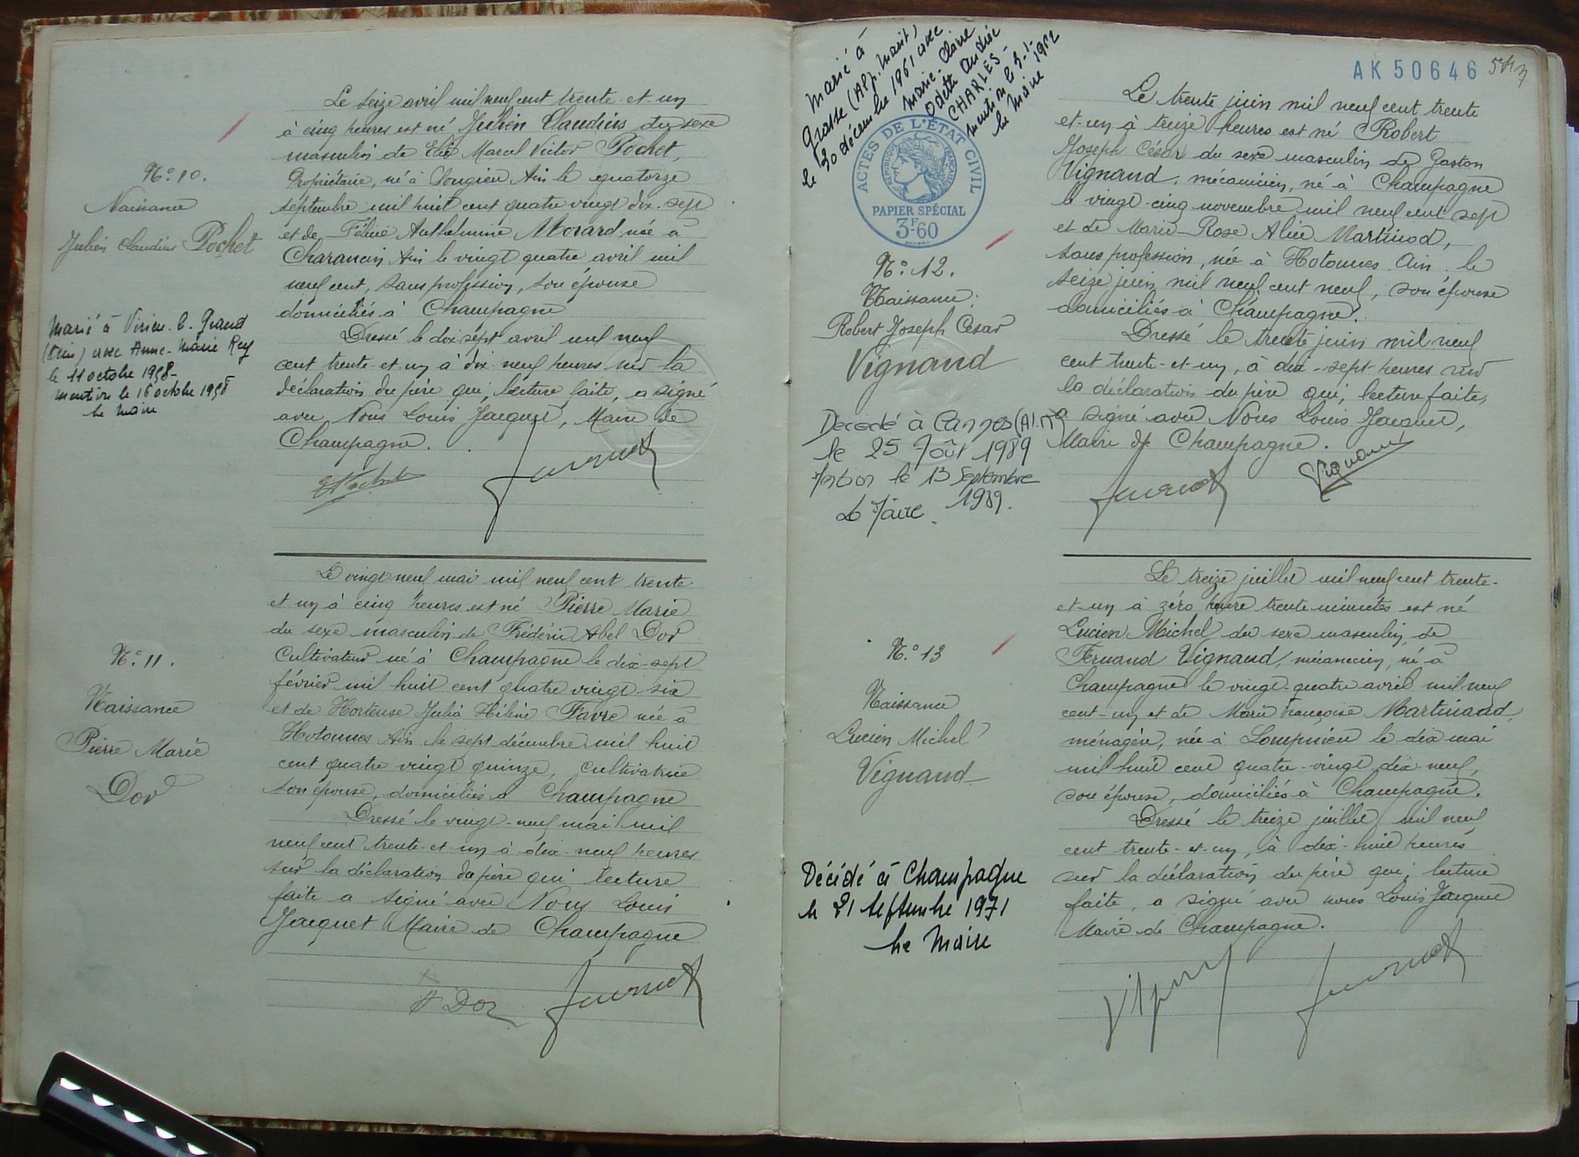 Le seize avril mil neuf cent trente-et-un
à cinq heures est né Julien Claudius du sexe
masculin de Elie Marcel Victor Pochet,
Propriétaire, né à Songieu Ain le quatorze
septembre mil huit cent quatre vingt dix-sept
et de Féline Anthelmine Morard née à
Charancin Ain le vingt quatre avril mil
neuf cent, sans profession, son épouse
domiciliés à Champagne
Dressé le dix sept avril mil neuf
cent trente-et-un à dix-neuf heures sur la
déclaration du père qui, lecture faite, a signé
avec Nous Louis Jacquet, Maire de
Champagne.
N° 10.
Naissance
Julien Claudius Pochet
Marié à Virieu-l-Grand
(Ain) avec Anne-Marie Rey
le 11 octobre 1958-
mention le 16 octobre 1958
le Maire
Le vingt neuf mai mil neuf cent trente
et un à cinq heures est né Pierre Marie
du sexe masculin de Frédéric Abel Dor
Cultivateur né à Champagne le dix-sept
février mil huit cent quatre vingt six
et de Hortense Julia Hélène Favre née à
Hotonnes Ain le sept décembre mil huit
cent quatre vingt quinze, cultivatrice
son épouse, domiciliés à Champagne
Dressé le vingt-neuf mai mil
neuf cent trente-et-un à dix-neuf heures
sur la déclaration du père qui lecture
faite a signé avec Nous Louis
Jacquet Maire de Champagne
N° 11.
Naissance
Pierre Marie
Dor
Dor
AK 50646
Marié à
Grasse (Alp. Marit)
le 30 décembre 1961 avec
Marie-Claire
Odette Andrée
CHARLES-
mention le
le Maire
ACTES DE L'ÉTAT CIVIL
PAPIER SPÉCIAL
3F60
Le trente juin mil neuf cent trente
et-un à treize heures est né Robert
Joseph César du sexe masculin de Gaston
Vignand, mécanicien, né à Champagne
le vingt-cinq novembre mil neuf cent sept
et de Marie-Rose Alice Martinod,
sans profession, née à Hotonnes Ain le
seize juin mil neuf cent neuf, son épouse
domiciliés à Champagne.
Dressé le trente juin mil neuf
cent trente-et-un, à dix-sept heures sur
la déclaration du père qui, lecture faite,
a signé avec Nous Louis Jacquet,
Maire de Champagne.
Vignand
N° 12.
Naissance
Robert Joseph César
Vignand
Décédé à Cannes (Al. M)
le 25 Août 1989
Mention le 13 Septembre
1989.
Le Maire
Le treize juillet mil neuf cent trente-
et-un à zéro heure trente minutes est né
Lucien Michel du sexe masculin de
Fernand Vignand, mécanicien, né à
Champagne le vingt-quatre avril mil neuf
cent-un et de Marie Françoise Martinand,
ménagère, née à Lompnieu le dix mai
mil huit cent quatre-vingt dix neuf,
son épouse, domiciliés à Champagne.
Dressé le treize juillet mil neuf
cent trente-et-un, à dix-huit heures
sur la déclaration du père qui, lecture
faite, a signé avec nous Louis Jacquet
Maire de Champagne.
N° 13
Naissance
Lucien Michel
Vignand
Décédé à Champagne
le 21 septembre 1971
Le Maire